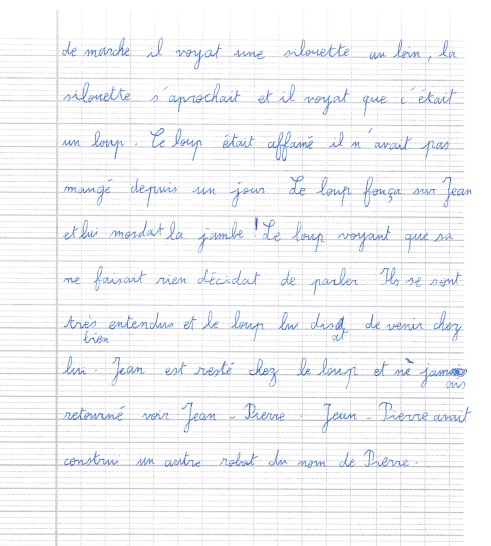 de marche il voyat une silouette au loin, la
silouette s'aprochait et il voyat que c'était
un loup. Le loup était affamé il n'avait pas
mangé depuis un jour Le loup fonça sur Jean
et lui mordat la jambe ! Le loup voyant que sa
ne faisait rien décidat de parler Ils se sont
très entendus et le loup lui disat de venir chez
bien
lui. Jean est resté chez le loup et nè jamais
retourné voir Jean-Pierre. Jean-Pierre avait
construi un autre robat du nom de Pierre.